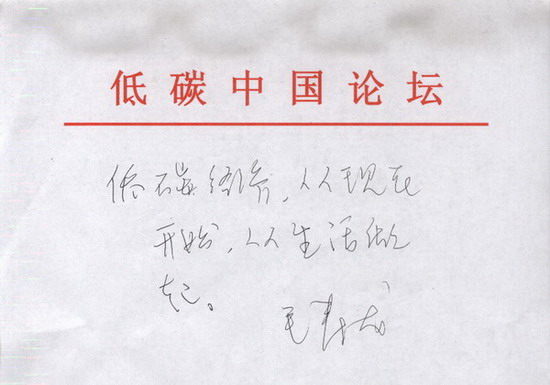 低碳中国论坛
低碳经济，从现在
开始，从生活做
起。